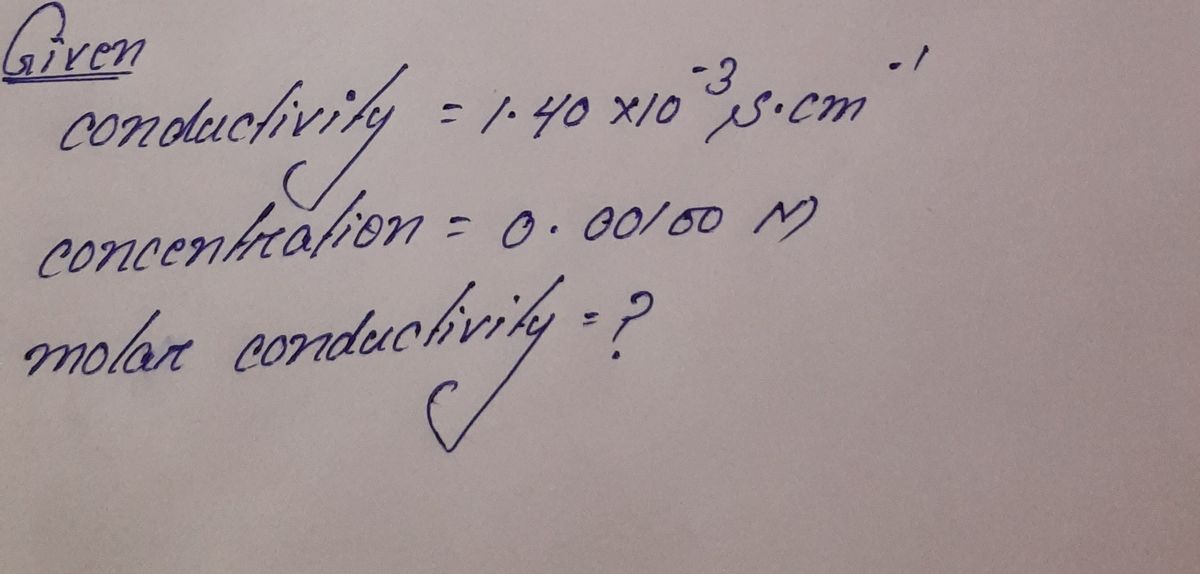 Given
conductivity = 1.40 ×10⁻³ S·cm⁻¹
concentration = 0.00100 M
molar conductivity = ?